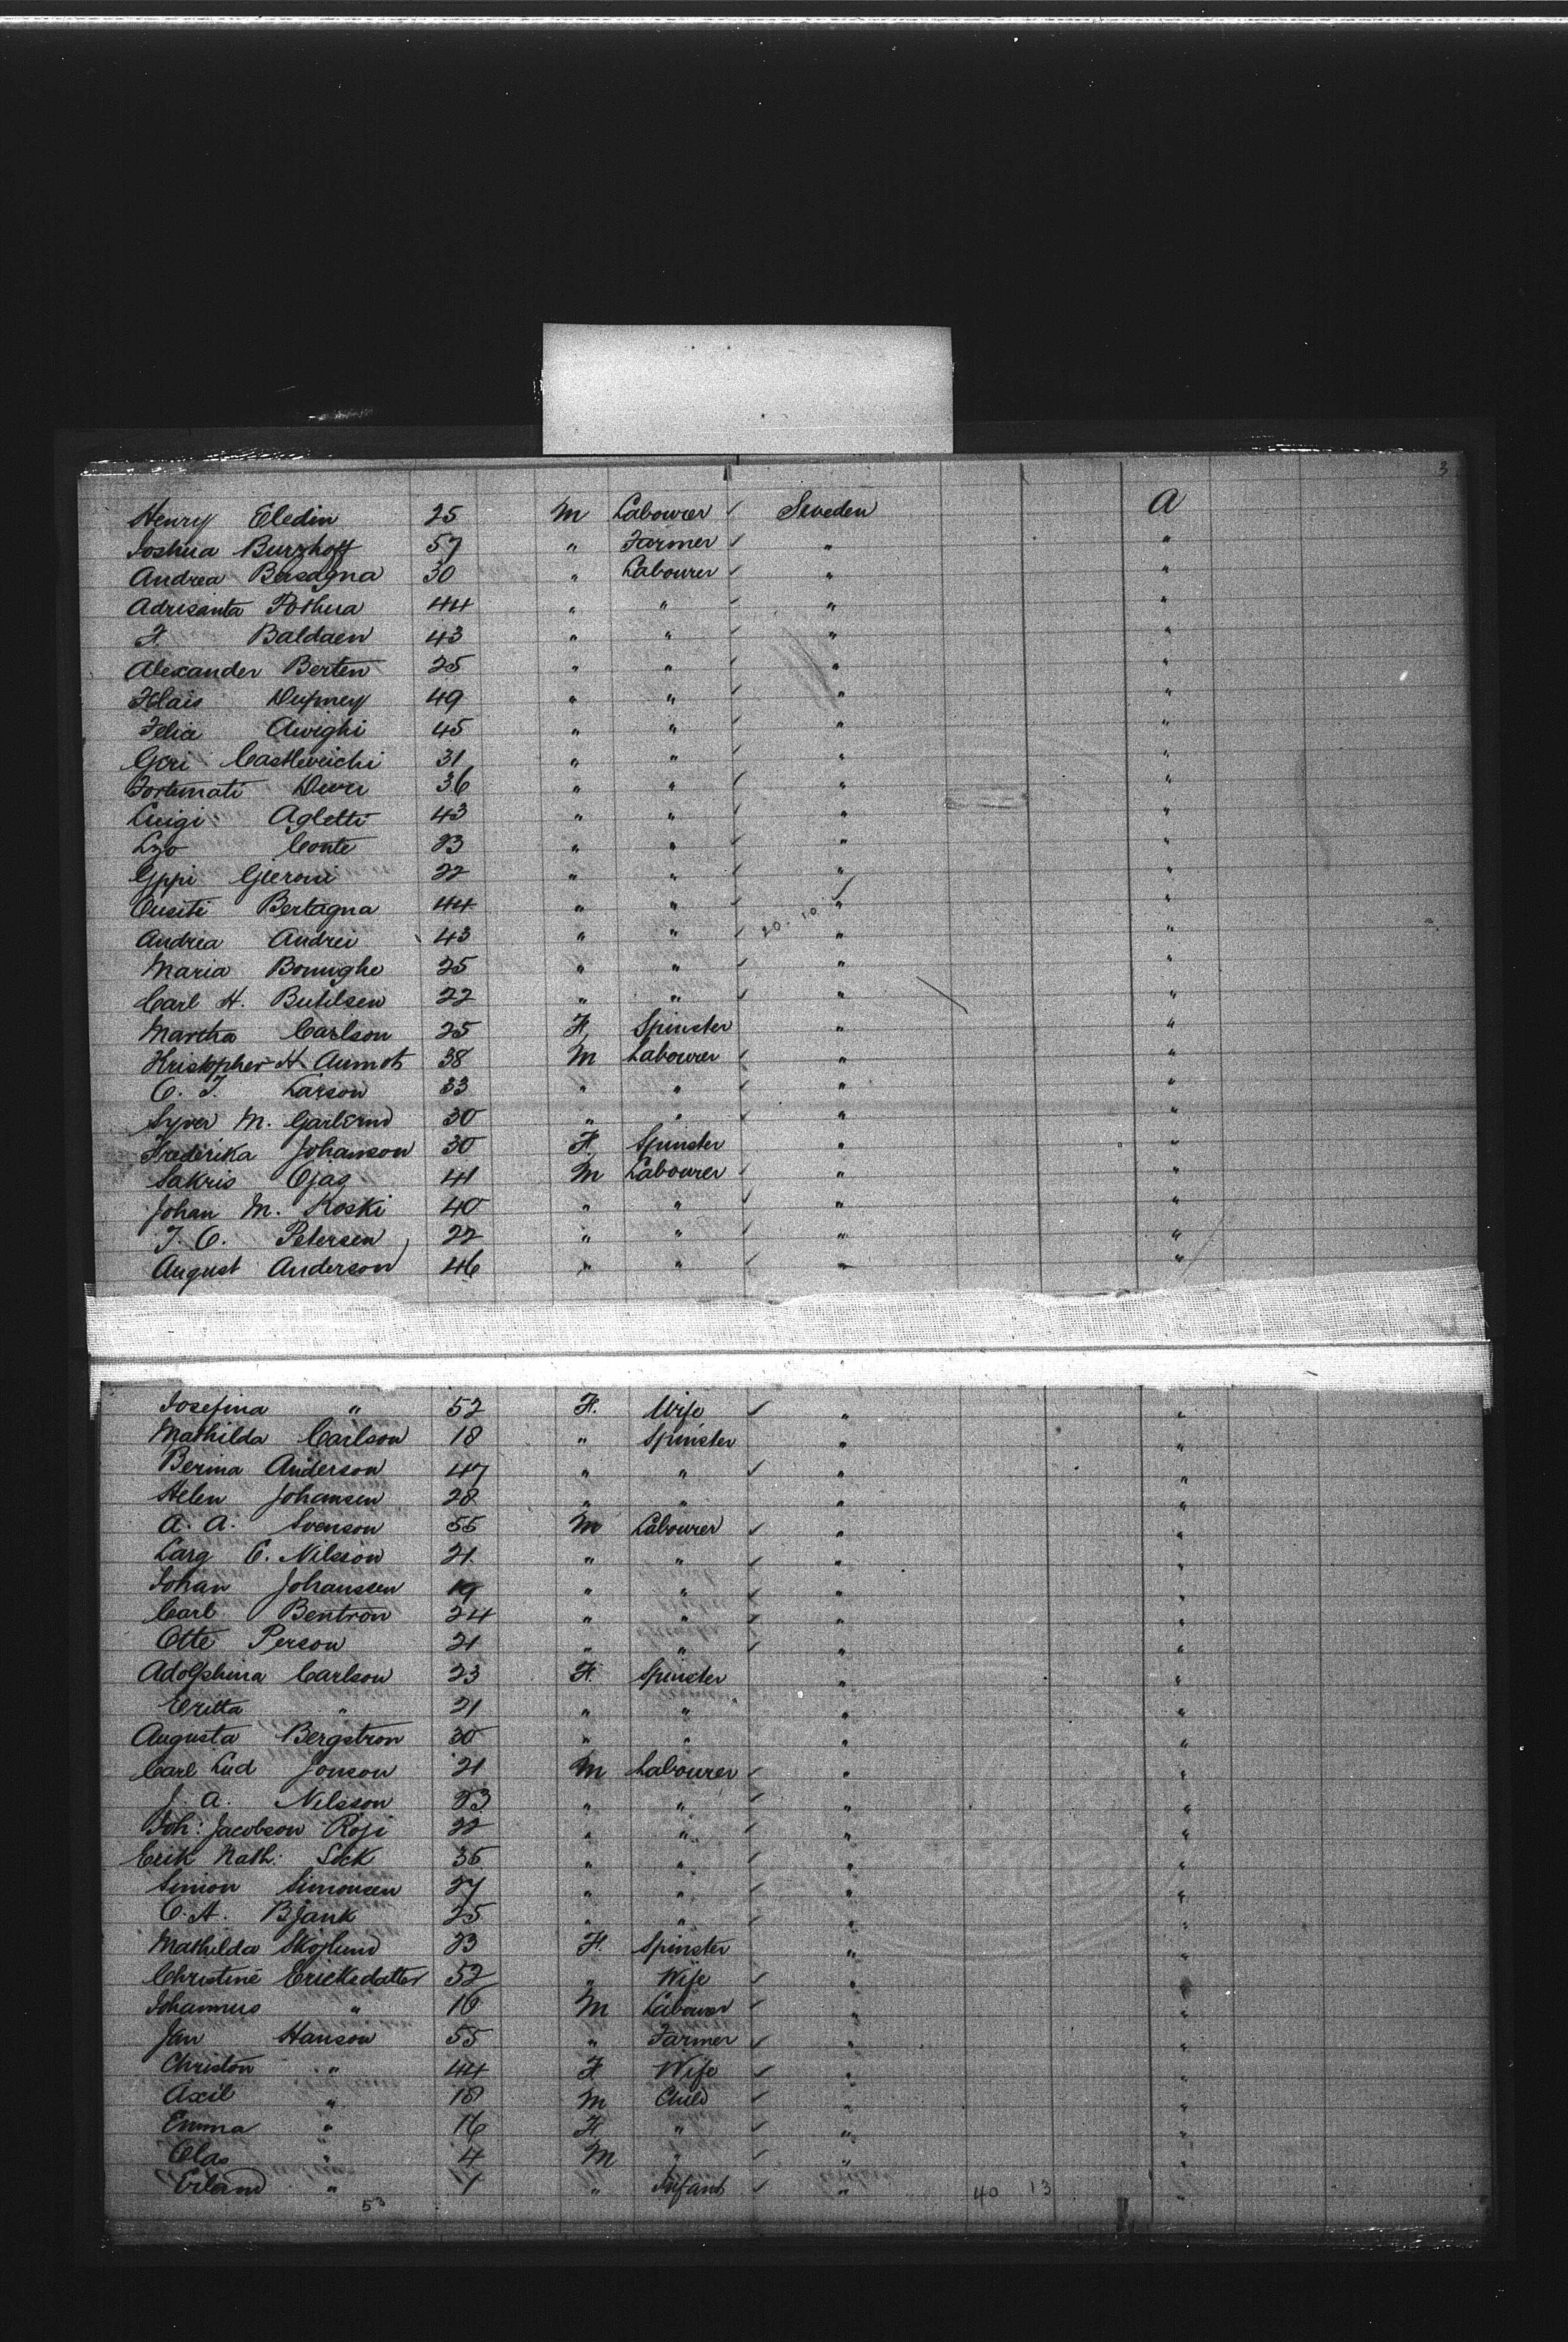 3
Henry Eledin 25 M Labourer ✓ Sweden A
Joshua Burzhoff 57 " Farmer ✓ " "
Andrea Bersagna 30 " Labourer ✓ " "
Adrisanta Pothua 44 " " ✓ " "
F. Baldaen 43 " " ✓ " "
Alexander Berten 25 " " ✓ " "
49 " " ✓ " "
Felia Awighi 45 " " ✓ " "
Geri 31 " " ✓ " "
Fortunati 36 " " ✓ " "
Luigi Agletti 43 " " ✓ " "
Lzo Conte 23 " " ✓ " "
Gppi Gieroni 22 " " ✓ " "
Bertagna 44 " " ✓ " "
Andrea Andrei 43 " " ✓ 20. 10. " "
Maria Bonughe 25 " " ✓ " "
Carl H. Buhlsen 22 " " ✓ " "
Martha Carlson 25 F. Spinster " "
Kristopher H. Aumot 38 M Labourer ✓ " "
C. J. Larson 33 " " ✓ " "
Syver M. 30 " " ✓ " "
Frederika Johanson 30 F. Spinster " "
Sakris Ojag 41 M Labourer ✓ " "
Johan M. Koski 40 " " ✓ " "
J. C. Petersen 22 " " ✓ " "
August Anderson 46 " " ✓ " "
Josefina " 52 F. Wife ✓ " "
Mathilda Carlson 18 " Spinster " "
Berina Anderson 47 " " ✓ " "
Helen Johansen 28 " " " "
A. A. Svenson 55 M Labourer ✓ " "
Larg C. Nilsson 21 " " ✓ " "
Johan Johanssen 19 " " ✓ " "
Carl Bentron 24 " " ✓ " "
Otte Person 21 " " ✓ " "
Adolphina Carlson 23 F. Spinster " "
Eritta " 21 " " " "
Augusta Bergstron 30 " " " "
Carl Lud Jonson 21 M Labourer ✓ " "
J. A. Nilsson 23 " " ✓ " "
Joh: Jacobson Roji 22 " " ✓ " "
Erik Math: Sick 35 " " ✓ " "
Simon Simonsen 27 " " ✓ " "
C. A. Bjank 25 " " ✓ " "
Mathilda Skojlund 23 F. Spinster " "
Christine Ericksdatter 52 " Wife ✓ " "
Johannus " 16 M Labourer ✓ " "
Jan Hanson 55 " Farmer ✓ " "
Christon " 44 F Wife ✓ " "
Axil " 18 M Child ✓ " "
Emma " 16 F. " ✓ " "
Olas " 4 M " ✓ " "
Erland " 1 " Infant ✓ " 40 13 "
53